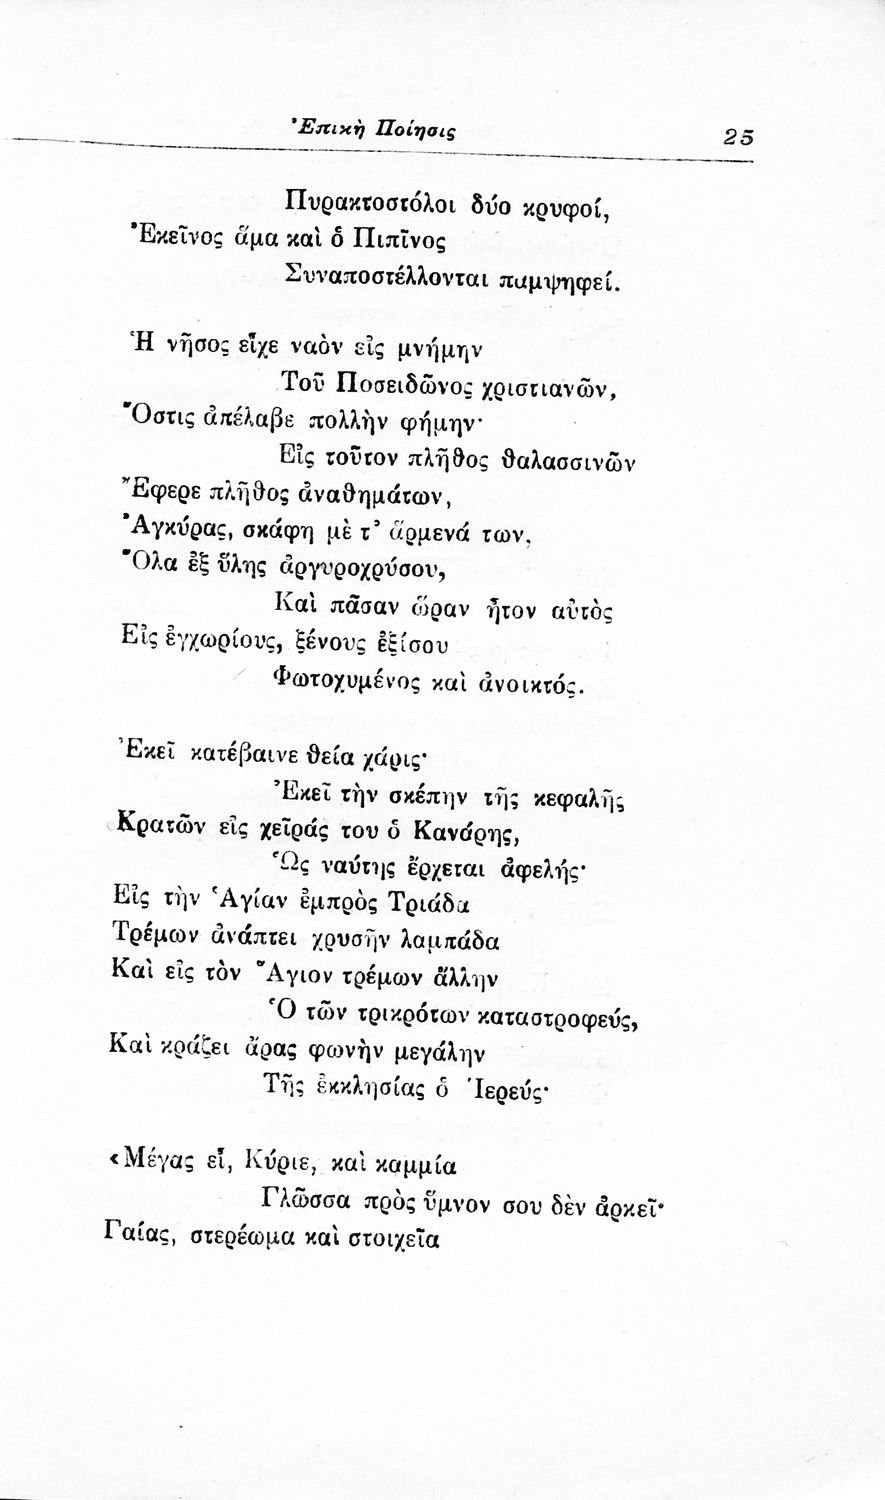 Ἐπικὴ Ποίησις 25
Πυρακτοστόλοι δύο κρυφοί,
Ἐκεῖνος ἅμα καὶ ὁ Πιπῖνος
Συναποστέλλονται παμψηφεί.
Ἡ νῆσος εἶχε ναὸν εἰς μνήμην
Τοῦ Ποσειδῶνος χριστιανῶν,
Ὅστις ἀπέλαβε πολλὴν φήμην·
Εἰς τοῦτον πλῆθος θαλασσινῶν
Ἔφερε πλῆθος ἀναθημάτων,
Ἀγκύρας, σκάφη μὲ τ’ ἄρμενά των,
Ὅλα ἐξ ὕλης ἀργυροχρύσου,
Καὶ πᾶσαν ὥραν ἦτον αὐτὸς
Εἰς ἐγχωρίους, ξένους ἐξίσου
Φωτοχυμένος καὶ ἀνοικτός.
Ἐκεῖ κατέβαινε θεία χάρις·
Ἐκεῖ τὴν σκέπην τῆς κεφαλῆς
Κρατῶν εἰς χεῖράς του ὁ Κανάρης,
Ὡς ναύτης ἔρχεται ἀφελής·
Εἰς τὴν Ἁγίαν ἐμπρὸς Τριάδα
Τρέμων ἀνάπτει χρυσῆν λαμπάδα
Καὶ εἰς τὸν Ἅγιον τρέμων ἄλλην
Ὁ τῶν τρικρότων καταστροφεύς,
Καὶ κράζει ἄρας φωνὴν μεγάλην
Τῆς ἐκκλησίας ὁ Ἱερεύς·
«Μέγας εἶ, Κύριε, καὶ καμμία
Γλῶσσα πρὸς ὕμνον σου δὲν ἀρκεῖ·
Γαίας, στερέωμα καὶ στοιχεῖα